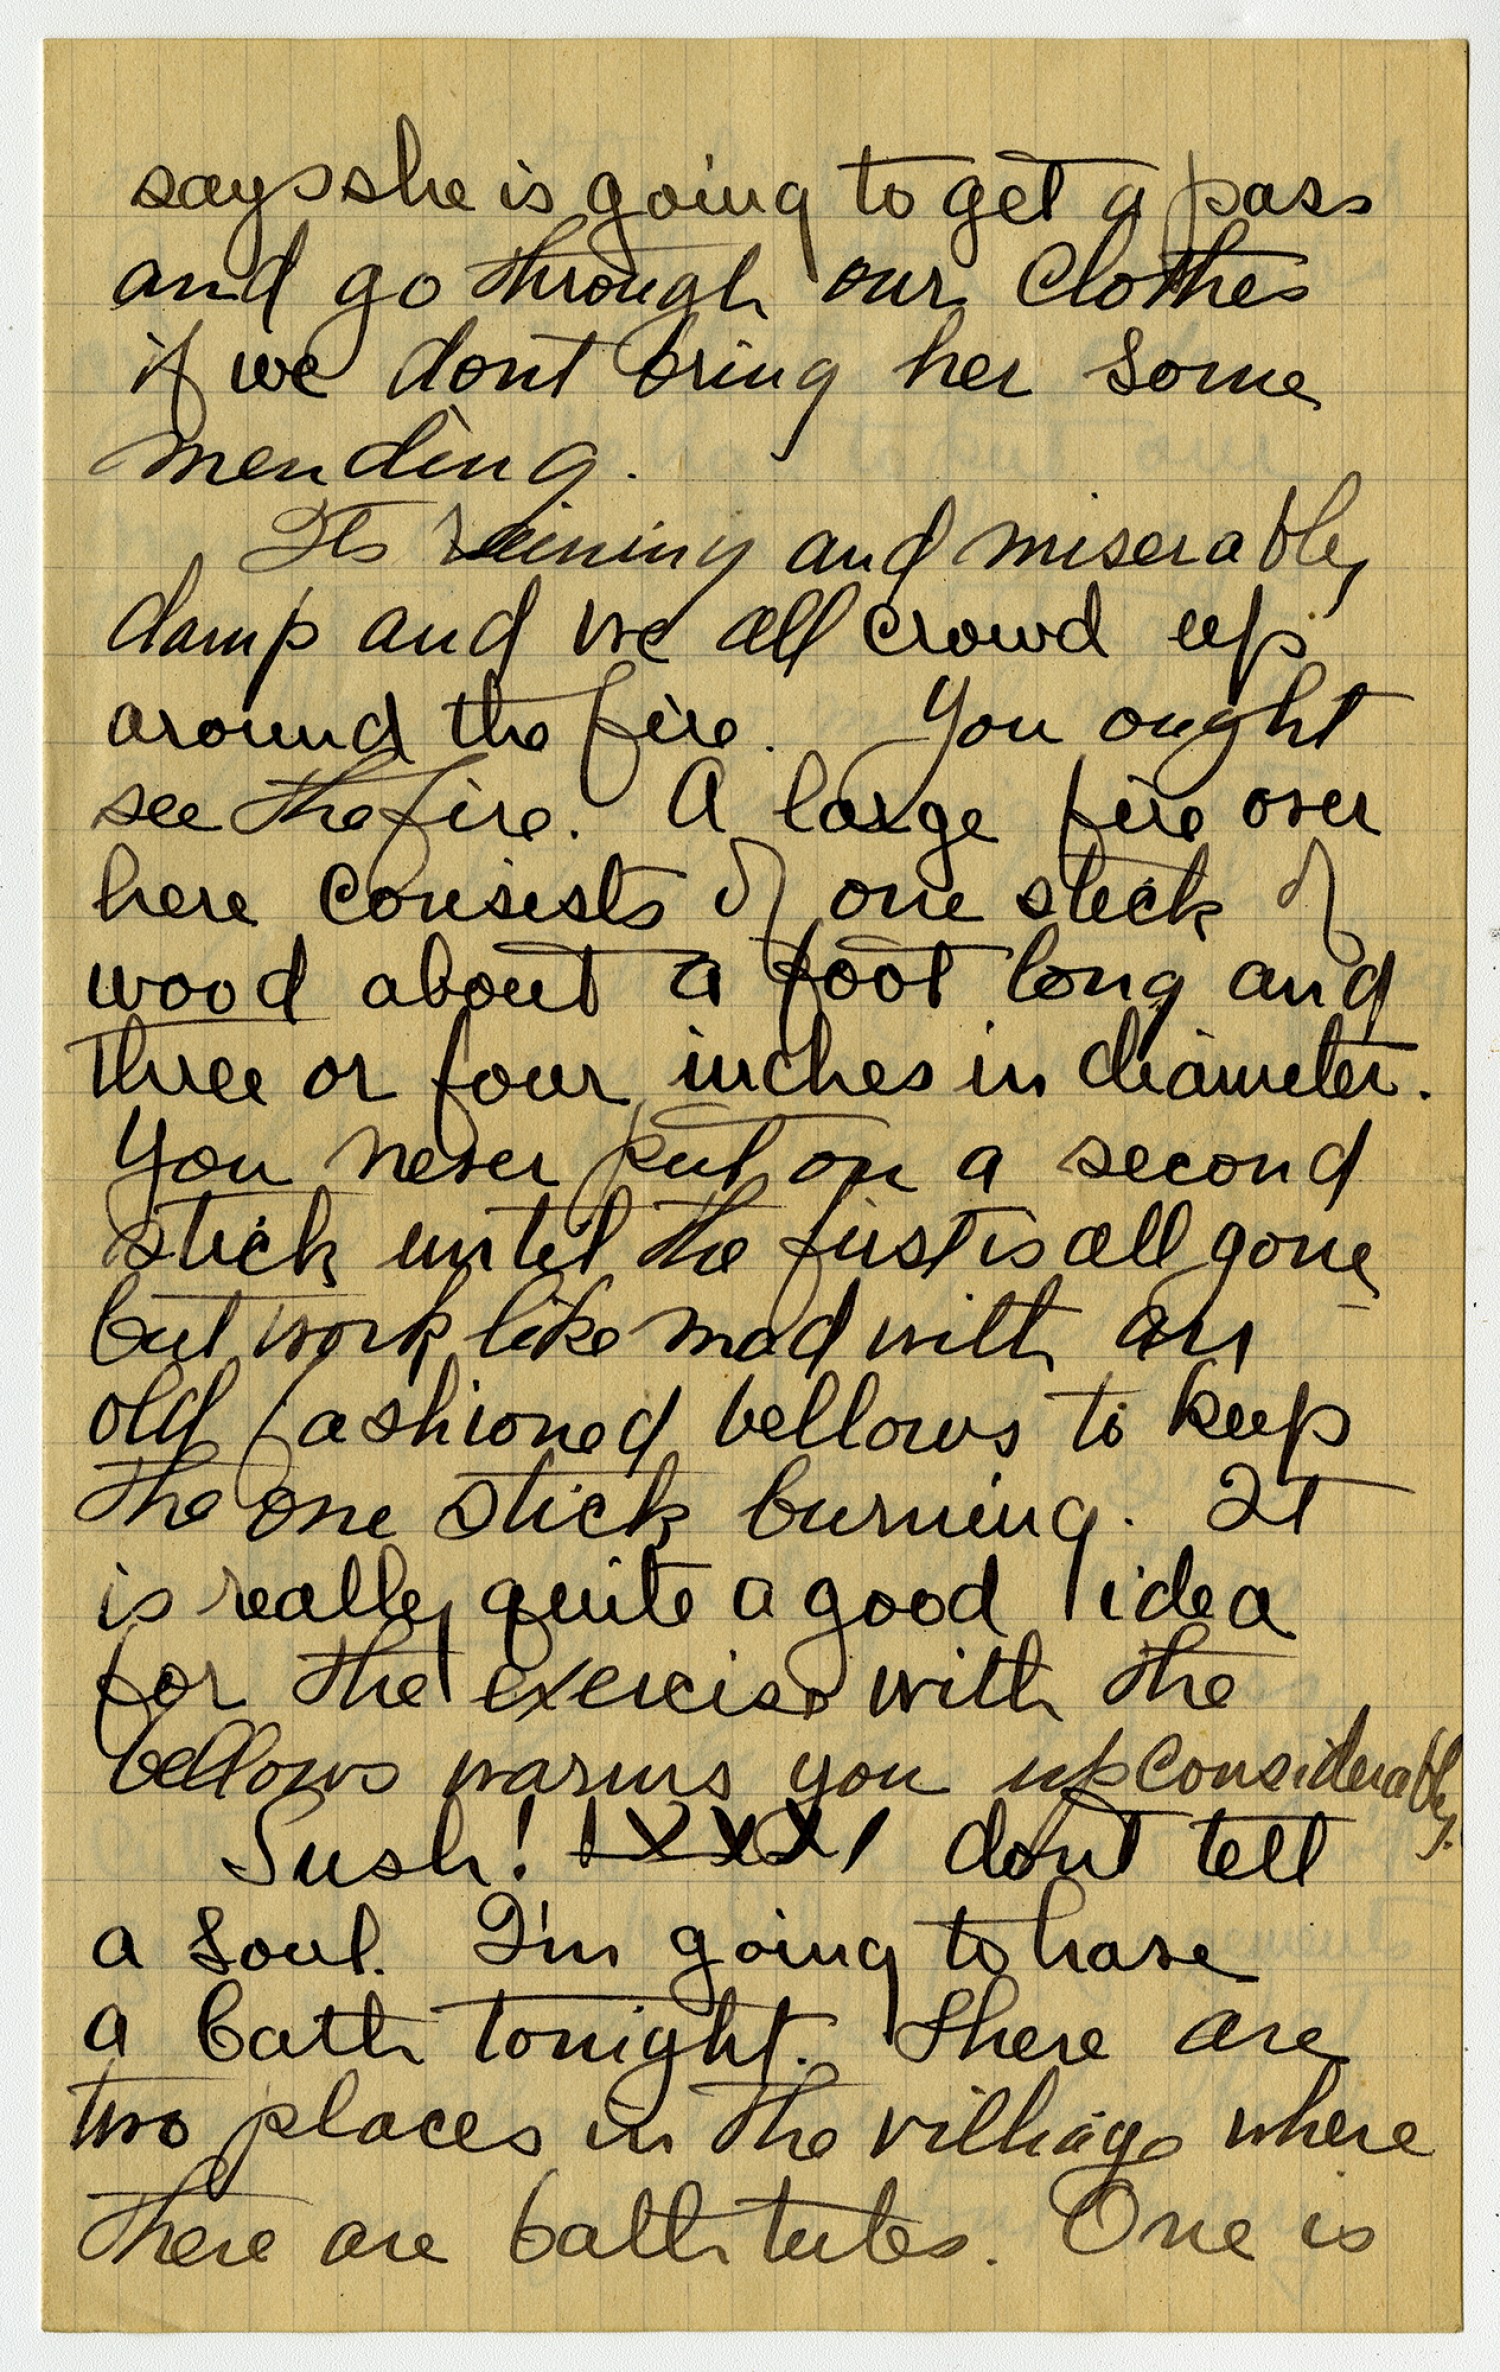 says she is going to get a pass
and go through our clothes
if we dont bring her some
mending.
Its raining and miserably
damp and we all crowd up
around the fire. You ought
see the fire. A large fire over
here consists of one stick of
wood about a foot long and
three or four inches in diameter.
You never put on a second
stick until the first is all gone
but work like mad with an
old fashioned bellows to keep
the one stick burning. It
is really quite a good idea
for the exercise with the
bellows warms you up considerably.
Sush! dont tell
a soul. I'm going to have
a bath tonight. There are
two places in the village where
there are bath tubs. One is